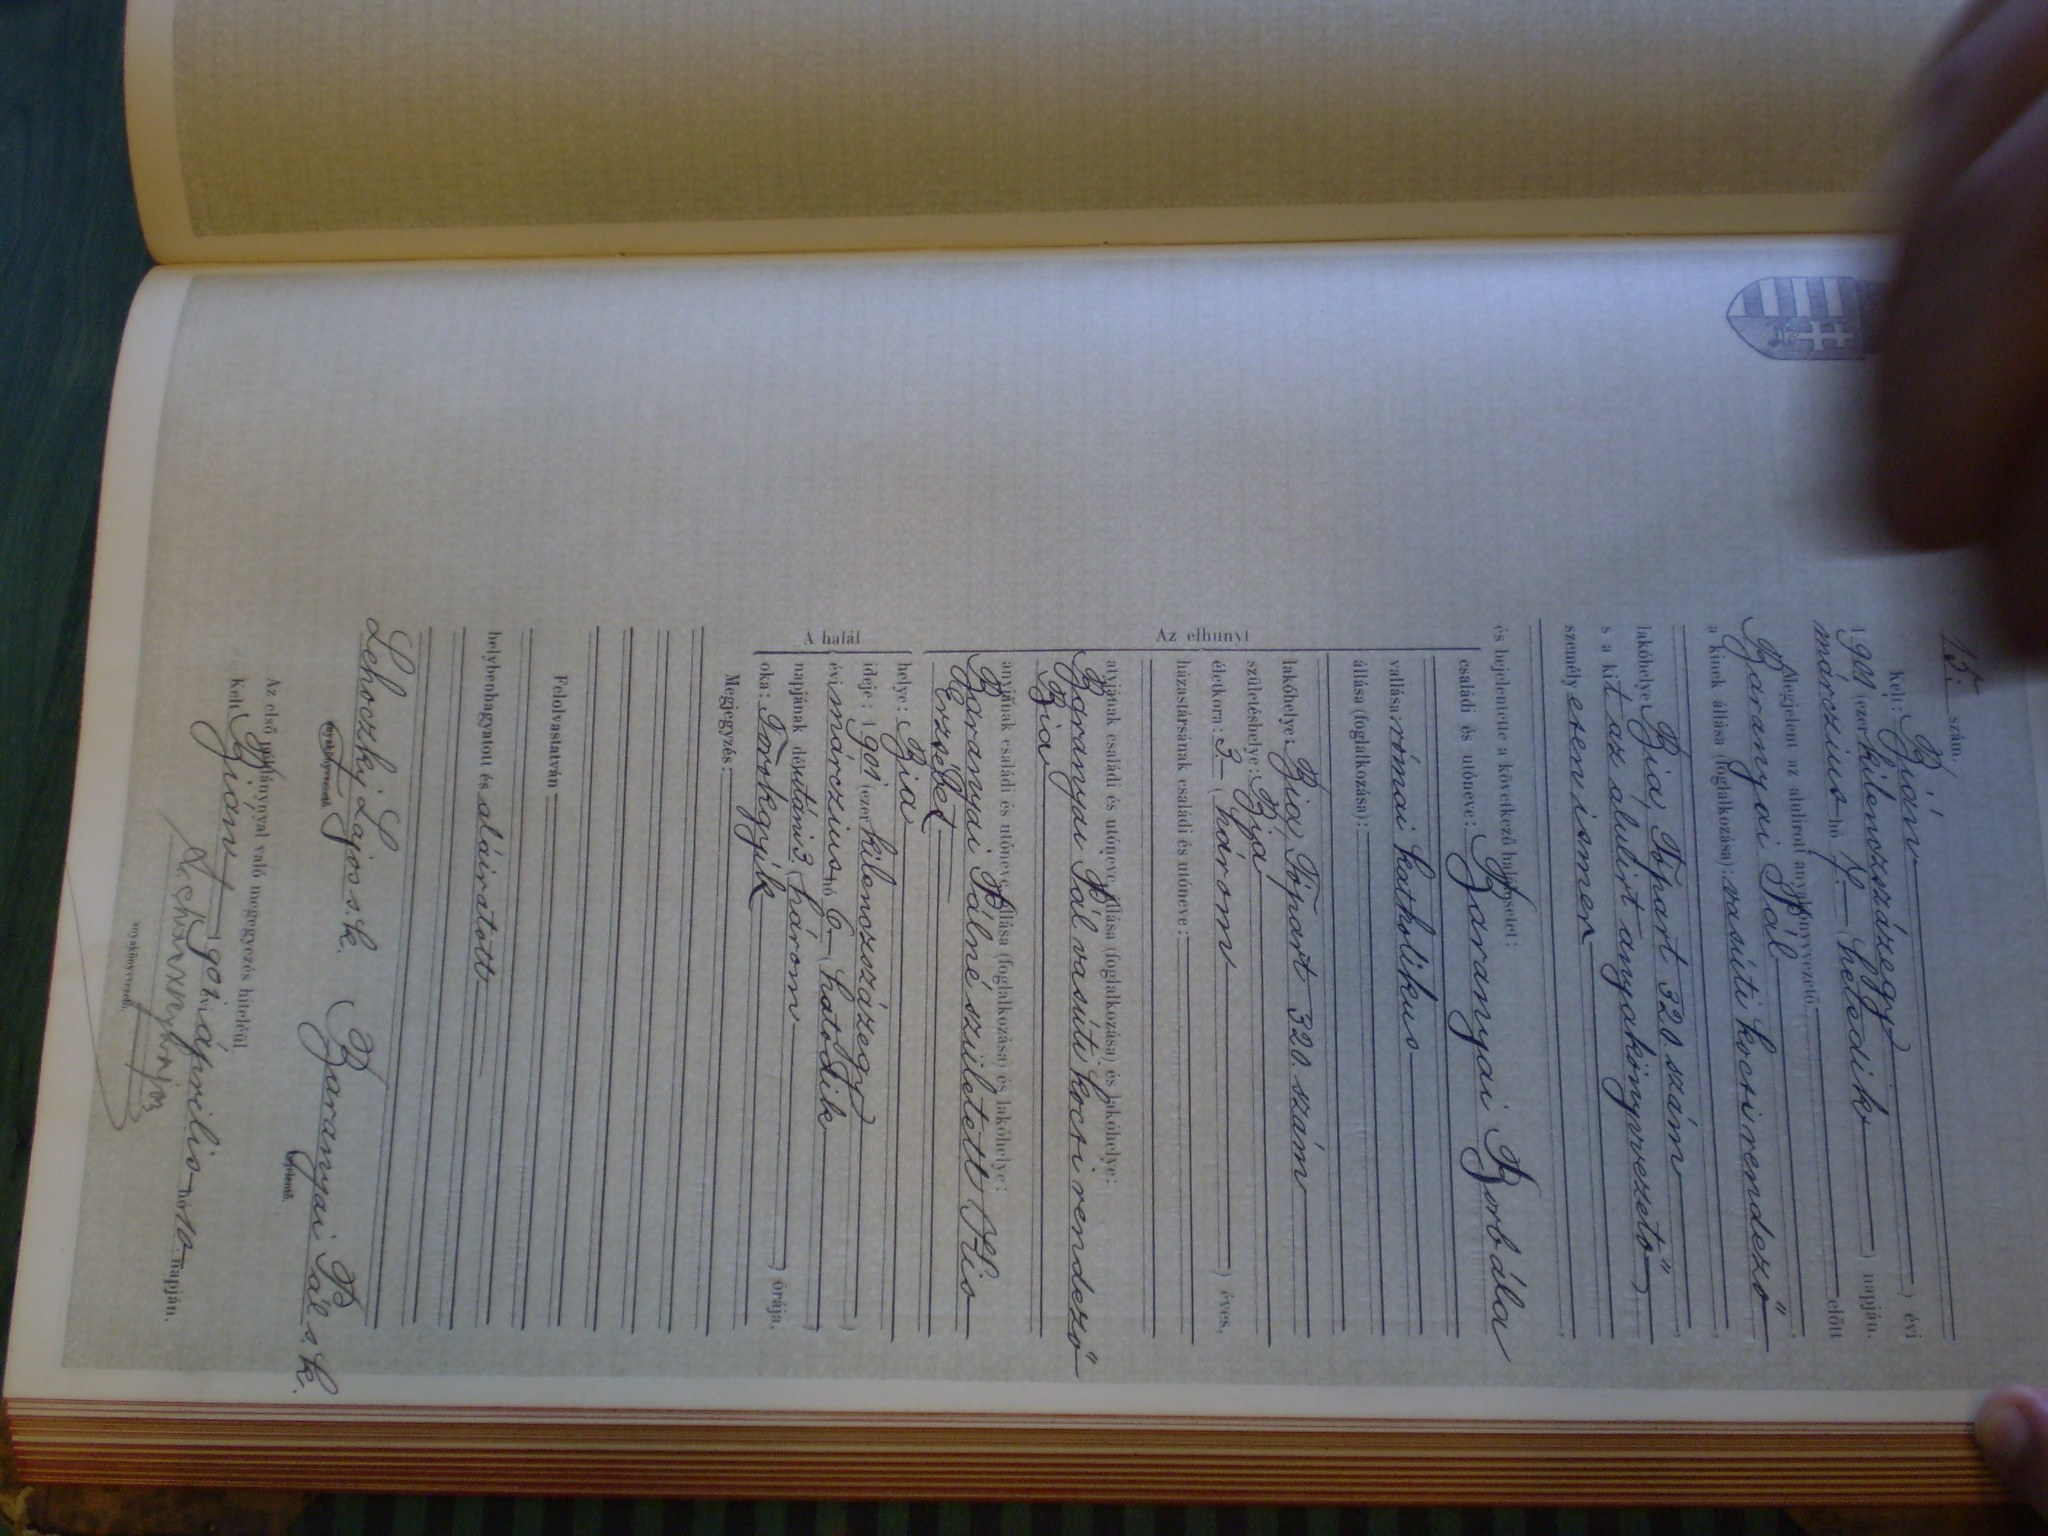 13. szám.
Kelt: Bián 
1901 (ezer kilenczszázegy) évi
márczius hó 7. (hetedik) napján.
Megjelent az alulirott anyakönyvvezető előtt
Baranyai Pál
a kinek állása (foglalkozása): vasúti kocsirendező,
lakóhelye: Bia, Tópart 320. szám,
s a kit az alulirt anyakönyvvezető
személyesen ismer,
és bejelentette a következő halálesetet:
Az elhunyt
családi és utóneve: Baranyai Borbála
vallása: római katholikus
állása (foglalkozása):
lakóhelye: Bia, Tópart 320. szám
születéshelye: Bia
életkora: 3. (három) éves,
házastársának családi és utóneve:
atyjának családi és utóneve, állása (foglalkozása) és lakóhelye:
Baranyai Pál vasúti kocsirendező
Bia
anyjának családi és utóneve, állása (foglalkozása) és lakóhelye:
Baranyai Pálné született Kis
Erzsébet
A halál
helye: Bia
ideje: 1901 (ezer kilenczszázegy)
évi márczius hó 6. (hatodik)
napjának délutáni 3 (három) órája.
oka: Torokgyík
Megjegyzés:
Felolvastatván
helybenhagyatott és aláiratott
Lehoczky Lajos s.k. Baranyai Pál s.k.
anyakönyvvezető. bejelentő.
Az első példánynyal való megegyezés hiteléül
Kelt Bián, 1901. április hó 10. napján.
anyakönyvvezető.